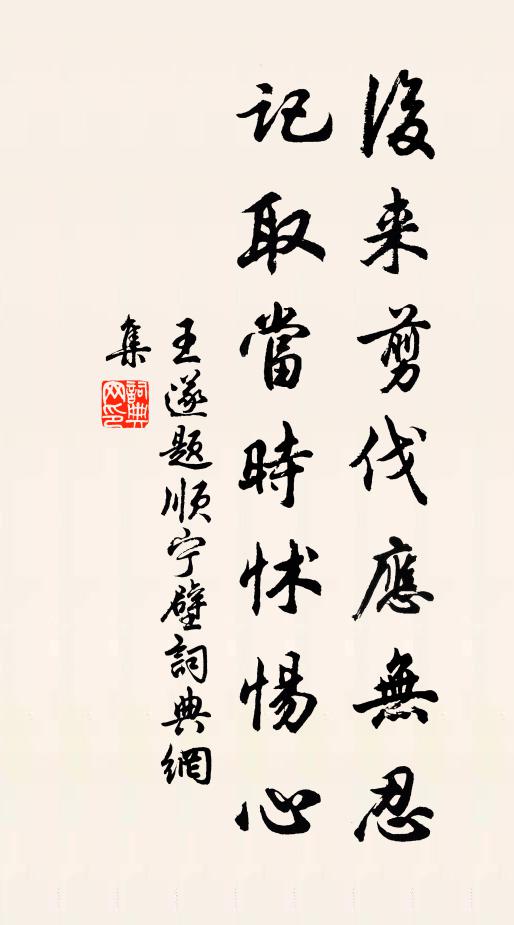 後来剪伐應無忍
記取當時怵惕心
王遂题顺宁壁詞典網
集
詞典网印